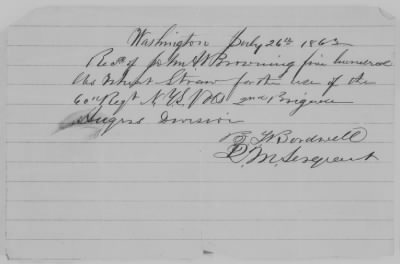 Washington July 26th 1863
Recd of John W Browning five hundred
lbs Wheat Straw for the use of the
60th Regt N.Y.S. Vols 2nd Brigade
Division
Bordwell
Q.M. Sergeant